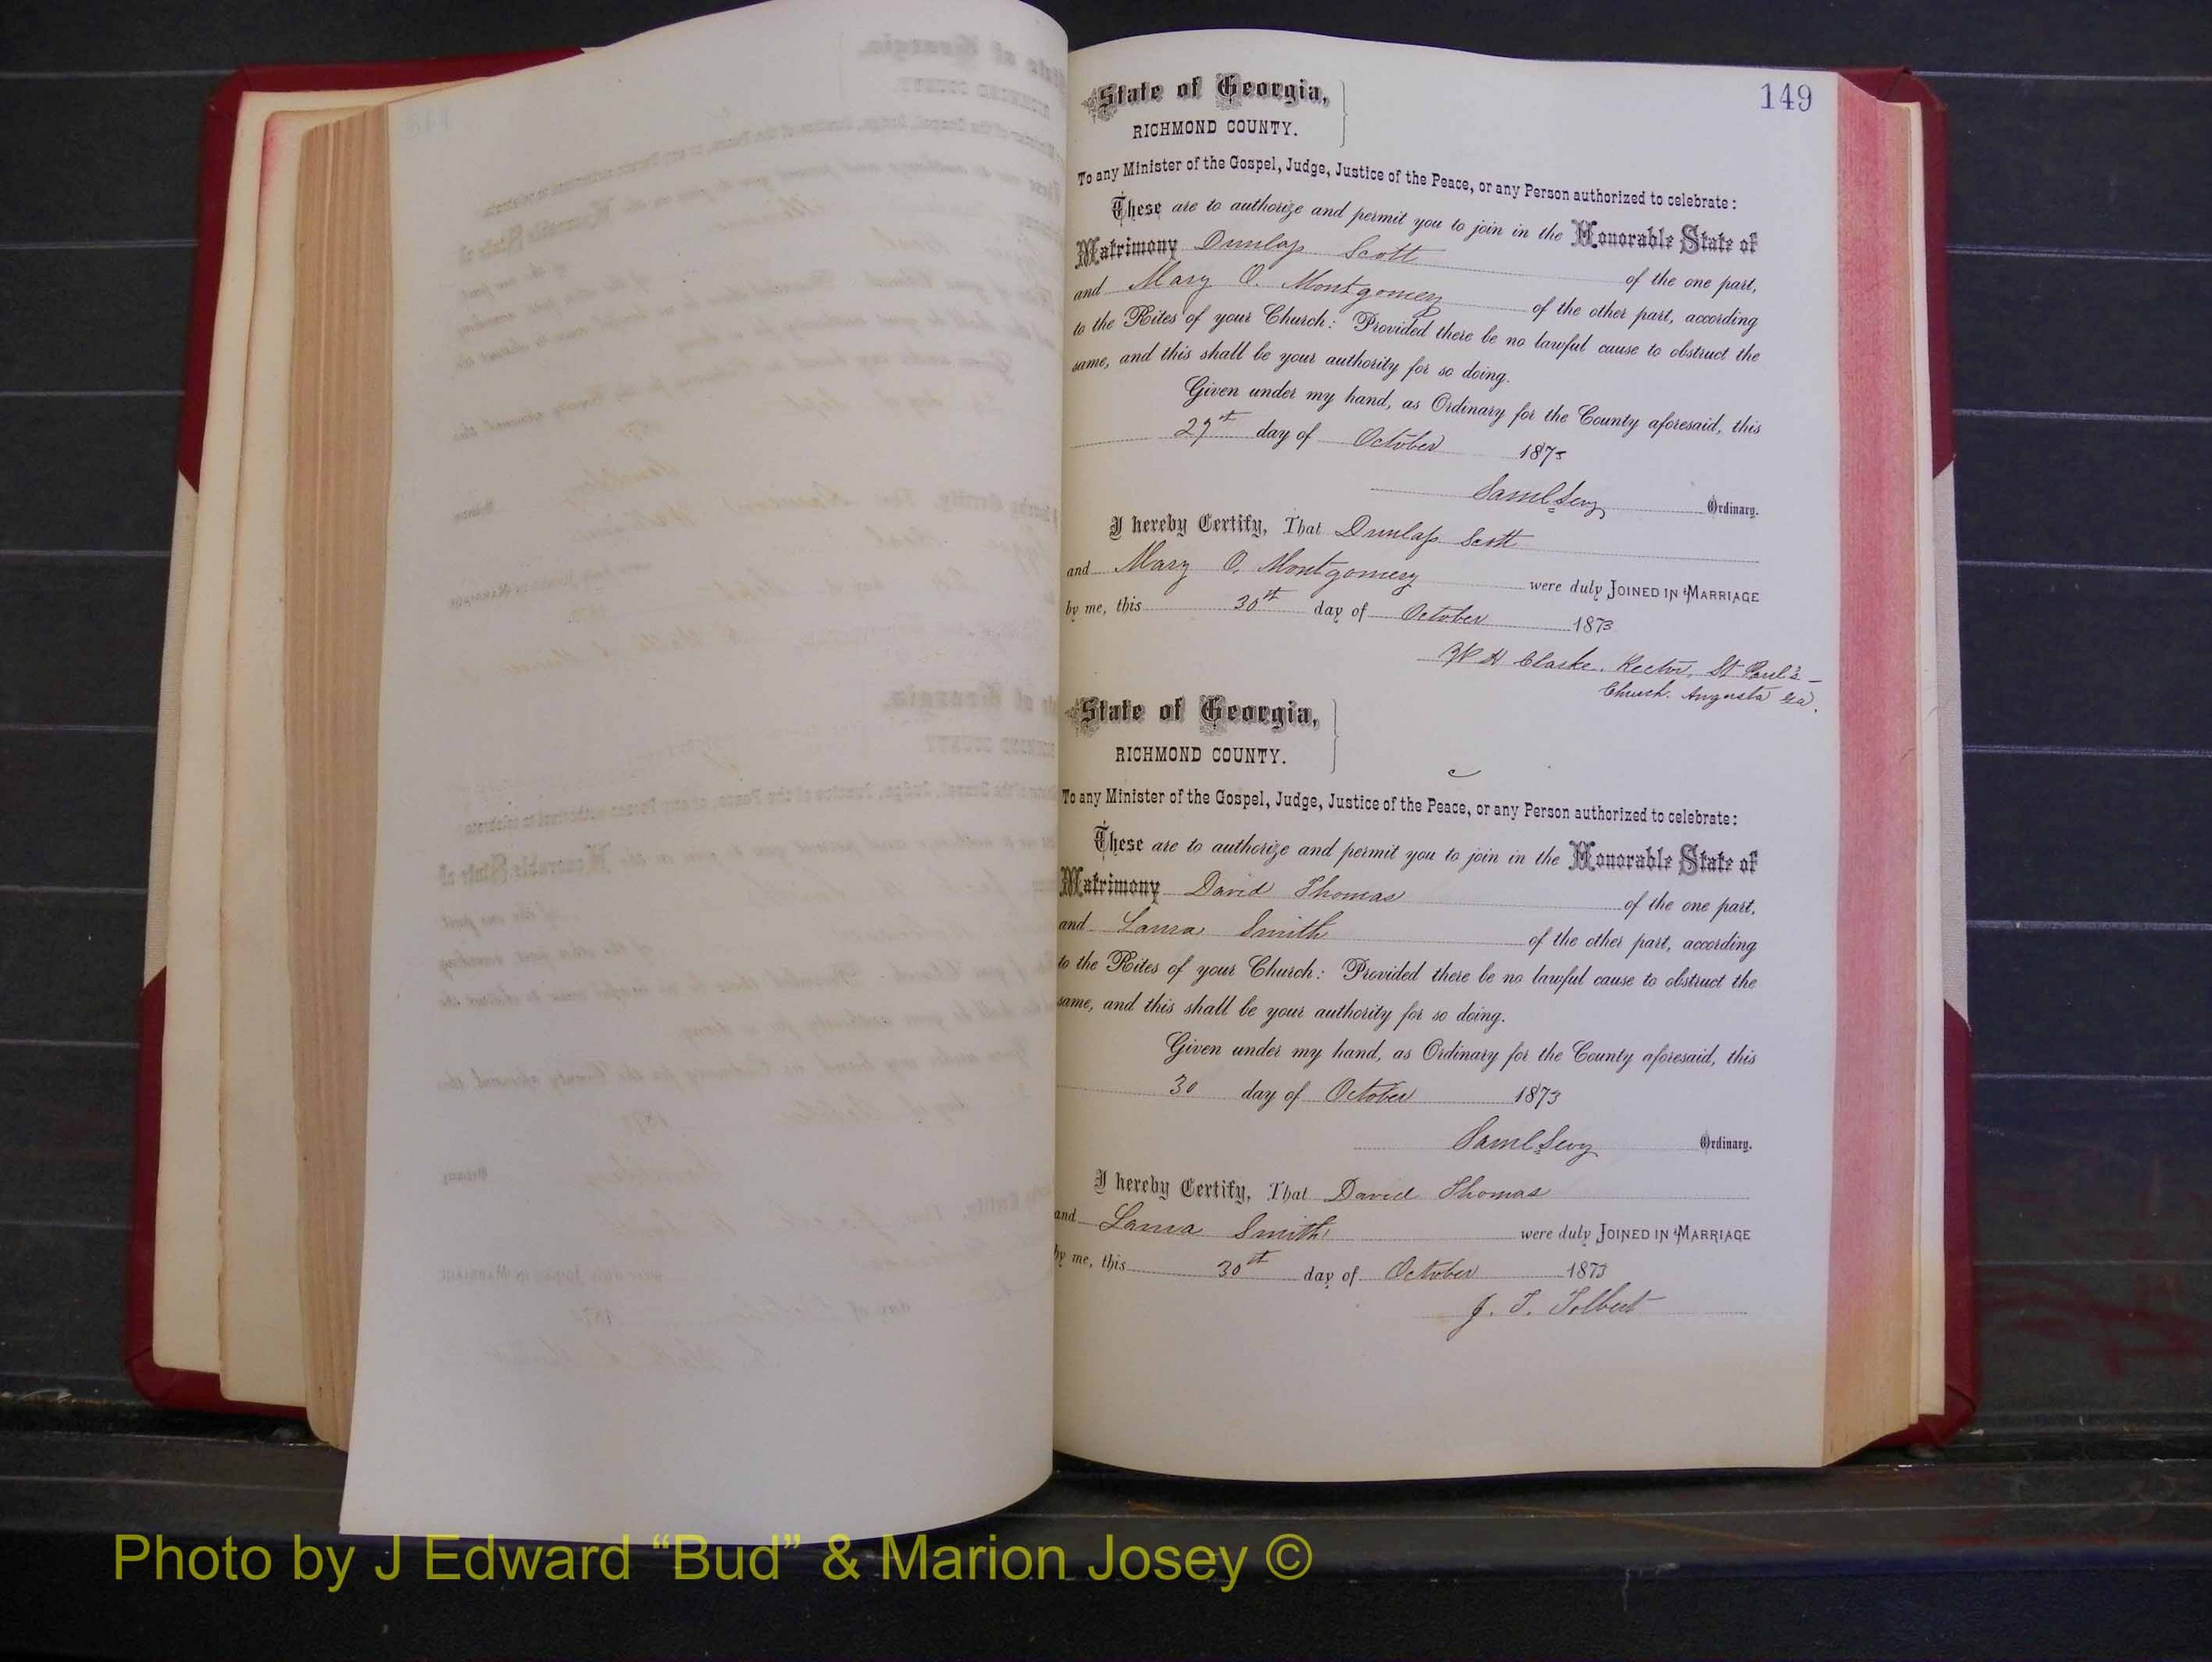 149
State of Georgia,
RICHMOND COUNTY.
To any Minister of the Gospel, Judge, Justice of the Peace, or any Person authorized to celebrate:
These are to authorize and permit you to join in the Honorable State of
Matrimony Dunlap Scott of the one part,
and Mary O. Montgomery of the other part, according
to the Rites of your Church: Provided there be no lawful cause to obstruct the
same, and this shall be your authority for so doing.
Given under my hand, as Ordinary for the County aforesaid, this
29th day of October 1873
Saml Levy Ordinary.
I hereby Certify, That Dunlap Scott
and Mary O. Montgomery were duly JOINED IN MARRIAGE
by me, this 30th day of October 1873
W H Clarke. Rector, St Paul's
Church. Augusta Ga.
State of Georgia,
RICHMOND COUNTY.
To any Minister of the Gospel, Judge, Justice of the Peace, or any Person authorized to celebrate:
These are to authorize and permit you to join in the Honorable State of
Matrimony David Thomas of the one part,
and Laura Smith of the other part, according
to the Rites of your Church: Provided there be no lawful cause to obstruct the
same, and this shall be your authority for so doing.
Given under my hand, as Ordinary for the County aforesaid, this
30 day of October 1873
Saml Levy Ordinary.
I hereby Certify, That David Thomas
and Laura Smith were duly JOINED IN MARRIAGE
by me, this 30th day of October 1873
J. T. Tolbert
Photo by J Edward “Bud” & Marion Josey ©